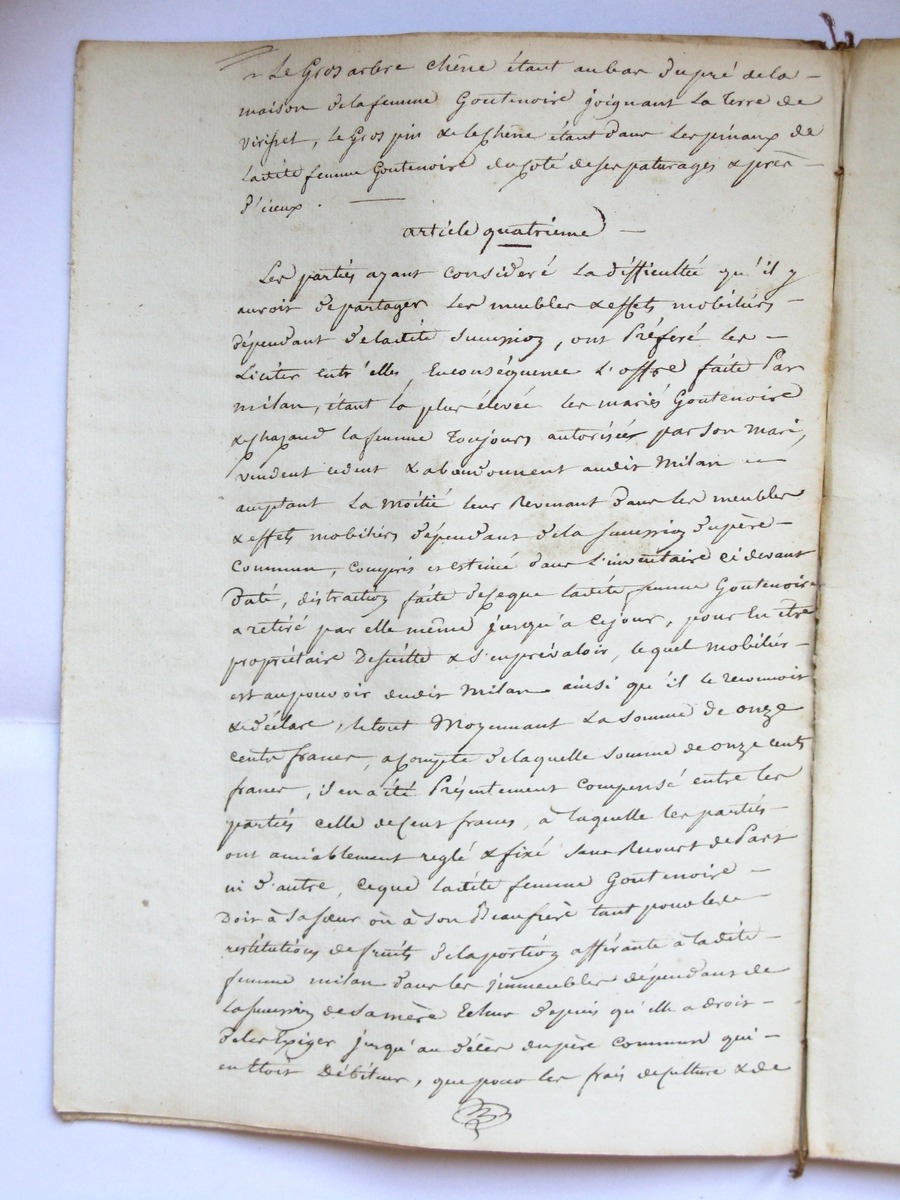 Le Gros arbre chêne étant au bas du pré de la
maison de la femme Goutenoire joignant La Terre de
, le Gros pin & le chêne étant dans Les pinaux de
ladite femme Goutenoire du Coté de ses paturages & près
d'iceux.
article quatrieme
Les partiés ayant consideré La difficultée qu'il y
auroit de partager Les meubles & effets mobiliérs
dépendant de ladite Succession, ont Préferé les
Liciter entr'elles, En conséquence L'offre faite Par
milan, étant la plus élevée les mariés Goutenoire
& la femme Toujours autorisée par son mari,
vendent cedent & abandonnent audit Milan
acceptant La Moitié leur Revenant dans les meubles
& effets mobiliers dépendant de la succession du père
commun, compris et estimé dans L'inventaire cidevant
Daté, distraction faite de ce que ladite femme Goutenoire
a retiré par elle même jusqu'à ce jour, pour en être
propriétaire De suitte & s'en prévaloir, lequel mobiliér
est au pouvoir dudit Milan ainsi qu'il le reconnoit
& déclare, le tout Moyennant La somme de onze
cents francs, a Compte de laquelle somme de onze cents
francs, il en a été Présentement compensé entre les
partiés celle de Cent francs, à laquelle les partiés
ont amiablement reglé & fixé sans Recourt de Part
ni d'autre, ce que ladite femme Goutenoire
Doit à sa sœur ou à son Beaufrère tant pour les
restitutions de fruits de la portion afférante à ladite
femme milan dans les jmmeubles dépendant de
la succession de sa mère Echus depuis qu'elle a droit
de les Exiger jusqu'au décès du père commun qui
en étoit Débiteur, que pour les frais de Culture & de